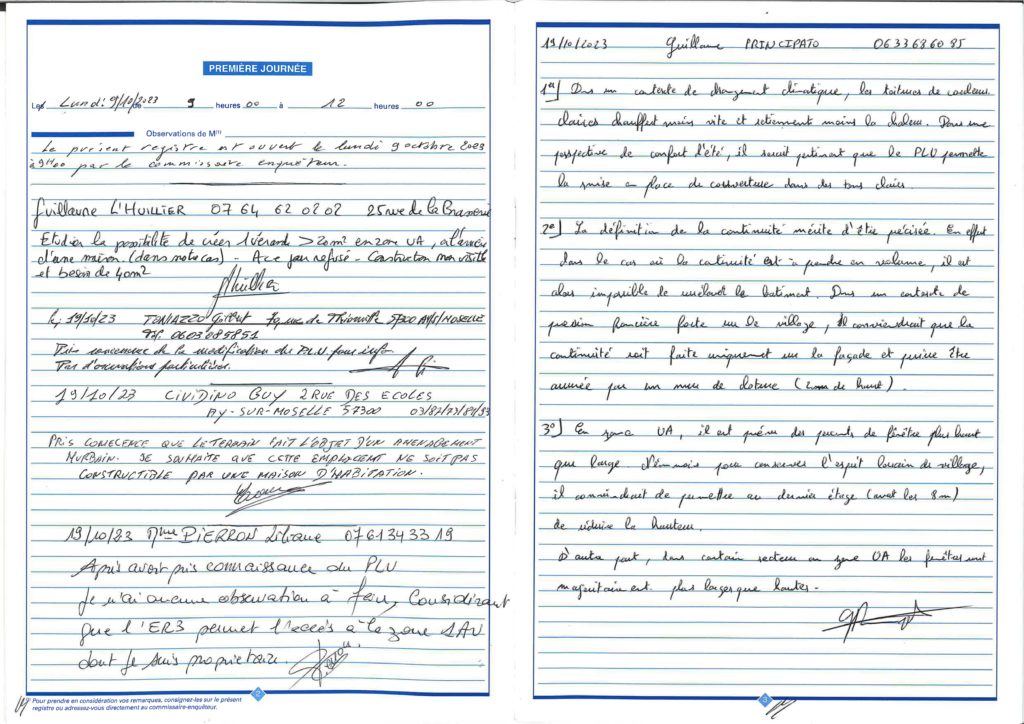 PREMIÈRE JOURNÉE
Les Lundi 9/10/2023 de 9 heures 00 à 12 heures 00
Observations de M(1)
Le présent registre est ouvert le lundi 9 octobre 2023
à 9H00 par le commissaire enquêteur.
Guillaume L'HUILLIER 07 64 62 02 02 25 rue de la Brasserie
Etudier la possibilité de créer 1 véranda > 20m² en zone UA, à l'arrière
d'une maison. (dans notre cas) - Ace jour refusé - Construction non visible
et besoin de 40m²
le 19/10/23 TONIAZZO Gilbert rue de Thionville 57300 AY/S/MOSELLE
Tél. 0603085851
Pris connaissance de la modification du P.L.U. pour info
Pas d'observations particulières.
19/10/23 CIVIDINO GUY 2 RUE DES ECOLES
AY-SUR-MOSELLE 57300 03/87/73/84/53
PRIS CONECENCE QUE LE TERRAIN FAIT L'OBJET D'UN AMENAGEMENT
MURBAIN. JE SOUHAITE QUE CETTE EMPLOCIENT NE SOIT PAS
CONSTRUCTIBLE PAR UNE MAISON D'HABITATION.
19/10/23 Mme PIERRON Liliane 0761343319
Après avoir pris connaissance du PLU
Je n'ai aucune observation à faire, Considérant
que l'ER3 permet l'accès à la zone 1AU
dont je suis propriétaire.
Pour prendre en considération vos remarques, consignez-les sur le présent
registre ou adressez-vous directement au commissaire-enquêteur.
2
19/10/2023 Guillaume PRINCIPATO 0633686085
1er] Dans un contexte de changement climatique, les toitures de couleurs
claires chauffent moins vite et retiennent moins la chaleur. Dans une
perspective de confort d'été, il serait pertinent que le PLU permette
la mise en place de couverture dans des tons clairs.
2e] La définition de la continuité mérite d'être précisée. En effet
dans le cas où la continuité est à prendre en volume, il est
alors impossible de le bâtiment. Dans un contexte de
pression foncière forte sur le village, il conviendrait que la
continuité soit faite uniquement sur la façade et puisse être
assurée par un mur de cloture (2m de haut).
3e] En zone UA, il est prévu des percents de fenêtre plus haut
que large. Néanmois pour conserver l'esprit lorrain de village,
il conviendrait de permettre au dernier étage (avant les 8m)
de réduire la hauteur.
D'autre part, dans certain secteur en zone UA les fenêtres sont
majoritairement plus larges que hautes.
3